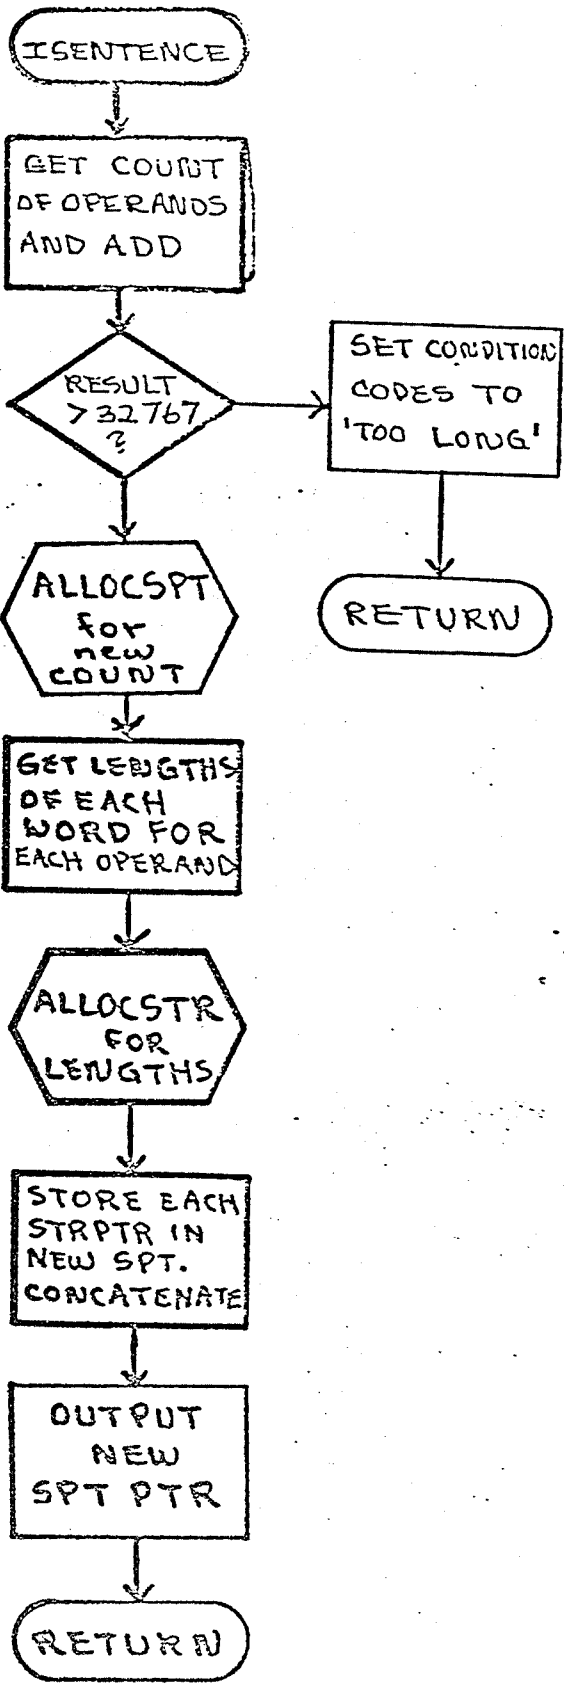 ISENTENCE
GET COUNT
OF OPERANDS
AND ADD
RESULT
> 32767
?
SET CONDITION
CODES TO
'TOO LONG'
RETURN
ALLOCSPT
for
new
COUNT
GET LENGTHS
OF EACH
WORD FOR
EACH OPERAND
ALLOCSTR
FOR
LENGTHS
STORE EACH
STRPTR IN
NEW SPT.
CONCATENATE
OUTPUT
NEW
SPT PTR
RETURN